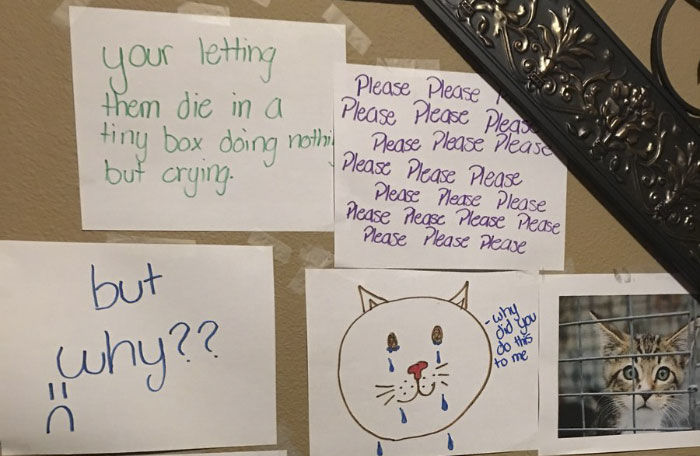 your letting
them die in a
tiny box doing nothi
but crying.
Please Please
Please Please Pleas
Please Please Please
Please Please Please
Please Please Please
Please Please Please Please
Please Please Please
but
why??
-why
did you
do this
to me